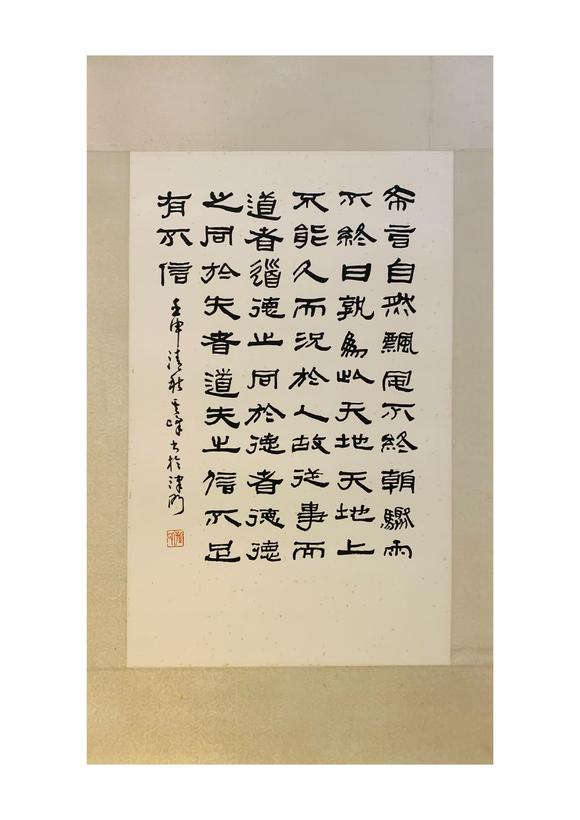 希言自然飄風不終朝驟雨
不終日孰為此天地天地上
不能久而況於人故從事而
道者道德之同於德者德德
之同於失者道失之信不足
有不信
壬申清秋雲峰书於津門